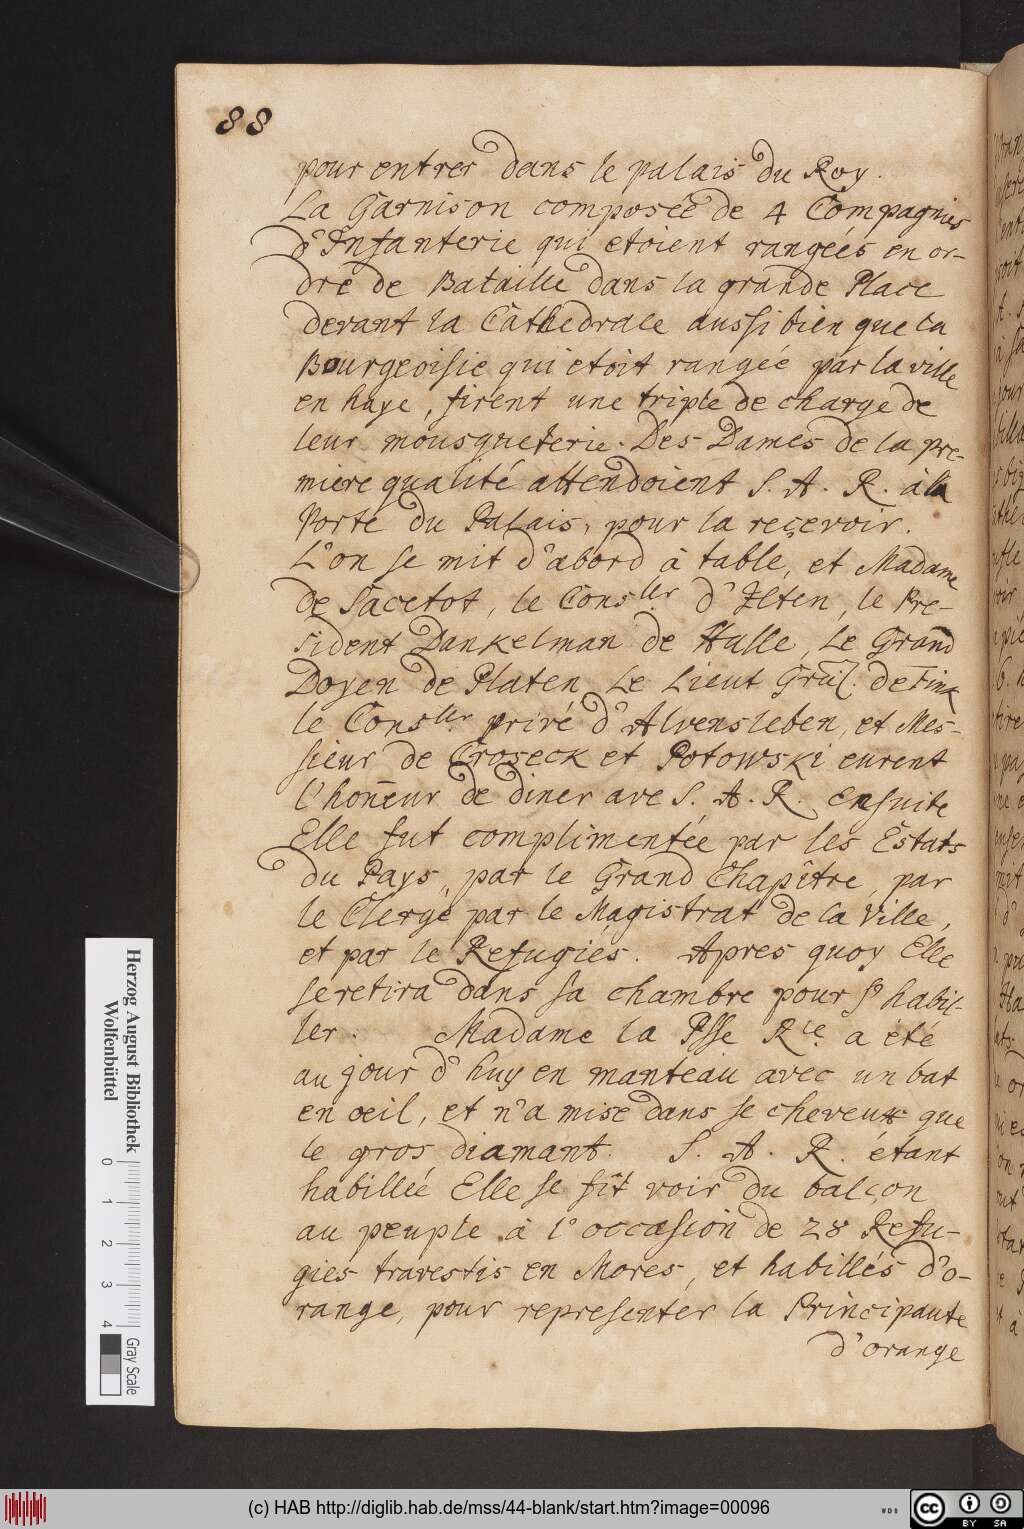 88
pour entrer dans le palais du Roy.
La Garnison composeé de 4 Compagnies
d'Infanterie qui etoient rangeés en or-
dre de Bataille dans la grande Place
devant la Cathedrale aussi bien que la
Bourgeoisie qui etoit rangeé par la ville
en haye, firent une triple de charge de
leur mousqueterie. Des Dames de la pre-
miere qualité attendoient S. A. R. à la
Porte du Palais, pour la reçevoir.
L'on se mit d'abord à table, et Madame
de Sacetot, le Consller d'Ilten, le Pre-
sident Dankelman de Halle, Le Grand
Doyen de Platen Le Lieut Gral. de Fink
le Consller privé d'Alvensleben, et Mes-
sieur de Croseck et Potowski eurent
l'honeur de diner ave S. A. R. ensuite
Elle fut complimentée par les Estats
du Pays, par le Grand Chapître, par
le Clergé par le Magistrat de la Ville,
et par le Refugiés. Apres quoy Elle
se retira dans sa chambre pour s'habil-
ler. Madame la Psse Rle. a été
au jour d'huy en manteau avec un bat
en oeil, et n'a mise dans se cheveux que
le gros diamant. S. A. R. étant
habilleé Elle se fit voir du balçon
au peuple à l'occasion de 28 Refu-
gies travestis en Mores, et habillés d'o-
range, pour representer la Principaute
d'orange
Herzog August Bibliothek
Wolfenbüttel
0 1 2 3 4
Gray Scale
(c) HAB http://diglib.hab.de/mss/44-blank/start.htm?image=00096
WDB
cc BY SA